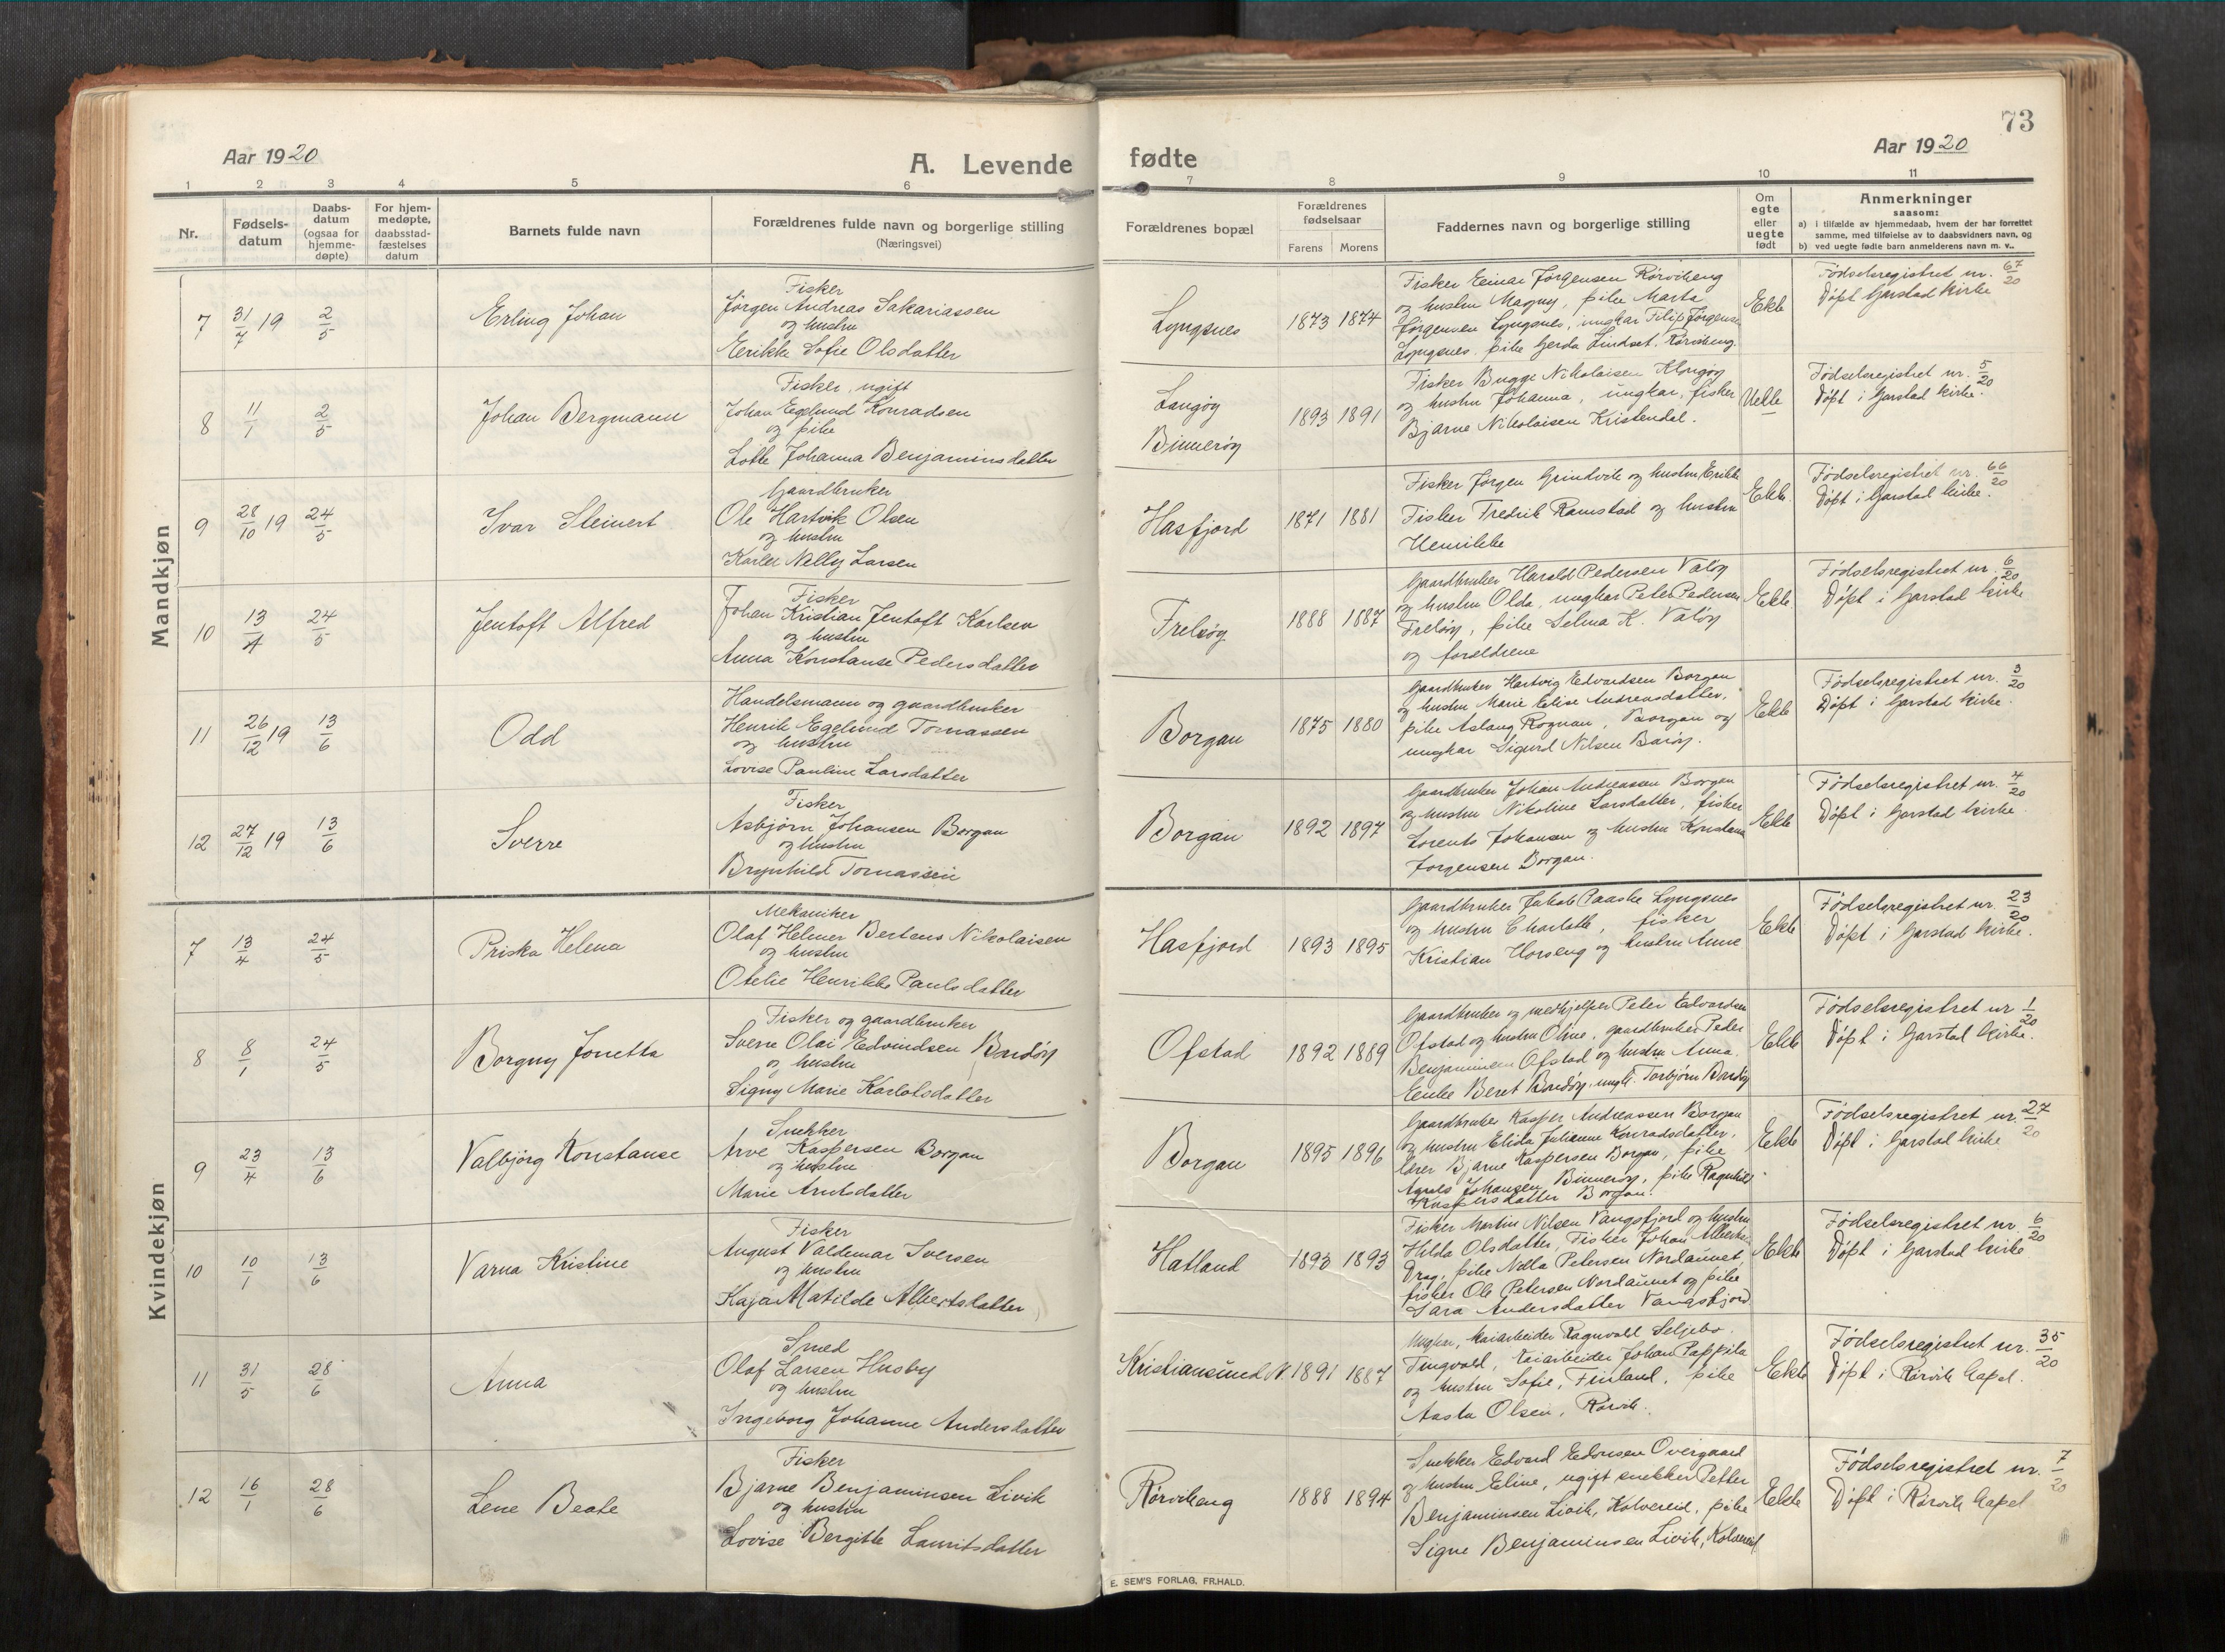 73
Aar 1920
A. Levende
fødte
Aar 1920
1 2 3 4 5 6 7 8 9 10 11
Nr.
Fødsels-
datum
Daabs-
datum
(ogsaa for
hjemme-
døpte)
For hjem-
medøpte,
daabsstad-
fæstelses
datum
Barnets fulde navn
Forældrenes fulde navn og borgerlige stilling
(Næringsvei)
Forældrenes bopæl
Forældrenes
fødselsaar
Farens Morens
Faddernes navn og borgerlige stilling
Om
egte
eller
uegte
født
Anmerkninger
saasom:
a) i tilfælde av hjemmedaab, hvem der har forrettet
samme, med tilføielse av to daabsvidners navn, og
b) ved uegte fødte barn anmelderens navn m. v..
Mandkjøn
7 31/7 19 2/5 Erling Johan
Fisker
Jörgen Andreas Sakariassen
og hustru
Eerikke Sofie Olsdatter
Lyngsnes 1873 1874
Fisker Einar Jørgensen Rørvikeng
og hustru Magny, pike Marta
Jørgensen Lyngsnes, ungkar Filip Jørgensen
Lyngsnes, pike Gerda Lindset, Rørvikeng.
Ekte
Fødselsregistret nr. 67/20
Døpt Garstad kirke
8 11/1 2/5 Johan Bergmann
Fisker, ugift
Johan Egelund Konradsen
og pike
Lotte Johanna Benjaminsdatter
Langøy
Binnerøy
1893 1891
Fisker Bugge Nikolaisen Klongøy
og hustru Johanna, ungkar, fisker
Bjarne Nikolaisen Kristendal.
Uekte
Fødselsregistret nr. 5/20
Døpt i Garstad kirke.
9 28/10 19 24/5 Ivar Steinert
Gaardbruker
Ole Hartvik Olsen
og hustru
Karler Nelly Larsen
Hasfjord 1871 1881
Fisker Jørgen Grindvik og hustru Erikke
Fisker Fredrik Ramstad og hustru
Henrikke
Ekte.
Fødselsregistret nr. 66/20
Døpt i Garstad kirke.
10 13/4 24/5 Jentoft Alfred
Fisker
Johan Kristian Jentoft Karlsen
og hustru
Anna Konstanse Pedersdatter
Frelsøy 1888 1887
Gaardbruker Harald Pedersen Valøy
og hustru Olda, ungkar Peter Pedersen
Frelsøy, pike Selma K. Valøy
og foreldrene
Ekte.
Fødselsregistret nr. 6/20
Døpt i Garstad kirke
11 26/12 19 13/6 Odd
Handelsmann og gaardbruker
Henrik Egelund Tomassen
og hustru
Lovise Pauline Larsdatter
Borgan 1875 1880
Gaardbruker Hartvig Edvardsen Borgan
og hustru Marie Elise Andreasdatter,
pike Aslaug Rognan, Borgan og
ungkar Sigurd Nilsen Barøy.
Ekte
Fødselsregistret nr. 3/20
Døpt i Garstad kirke.
12 27/12 19 13/6 Sverre
Fisker
Asbjørn Johansen Borgan
og hustru
Brynhild Tomassen
Borgan 1892 1897
Gaardbruker Johan Andreassen Borgan
og hustru Nikoline Larsdatter, fisker
Lorents Johansen og hustru Konstanse
Jørgensen Borgan.
Ekte
Fødselsregistret nr. 4/20
Døpt i Garstad kirke
Kvindekjøn
7 13/4 24/5 Priska Helena
Mekaniker
Olaf Helmer Berteus Nikolaisen
og hustru
Otelie Henrikke Paulsdatter
Hasfjord 1893 1895
Gaardbruker Jakob Paaske Lyngsnes
og hustru Charlotte, fisker
Kristian Horseng og hustru Anne
Ekte
Fødselsregistret nr. 23/20
Døpt i Garstad kirke.
8 8/1 24/5 Borgny Jonetta
Fisker og gaardbruker
Sverre Olai Edvindsen Bondøy
og hustru
Signy Marie Karlotsdatter
Ofstad 1892 1889
Gaardbruker og medhjelper Peter Edvardsen
Ofstad og hustru Oline, gaardbruker Peder
Benjaminsen Ofstad og hustru Anna.
Enke Beret Bondøy, ungk. Torbjørn Bondøy
Ekte
Fødselsregistret nr 1/20
Døpt i Garstad kirke.
9 23/4 13/6 Valbjörg Konstanse
Snekker
Arve Kaspersen Borgan
og hustru
Marie Arntsdatter
Borgan 1895 1896
Gaardbruker Kasper Andreassen Borgan
og hustru Elida Julianne Konradsdatter,
lærer Bjarne Kaspersen Borgan, pike
Johansen Binnerøy, pike Ragnhild
Kaspersdatter Borgan.
Ekte
Fødselsregistret nr. 27/20
Døpt i Garstad kirke
10 10/1 13/6 Varna Kristine
Fisker
August Valdemar Iversen
og hustru
Kaja Matilde Albertsdatter
Hatland 1893 1893
Fisker Martin Nilsen Vangsfjord og hustru
Hilda Olsdatter, Fisker Johan Albertsen
Drag, pike Nella Petersen Nordaunet,
fisker Ole Petersen Nordaunet og pike
Sara Andersdatter Vangsfjord
Ekte
Fødselsregistret nr. 6/20
Døpt i Garstad kirke
11 31/5 28/6 Anna
Smed
Olaf Larsen Husby
og hustru
Ingeborg Johanne Andersdatter
Kristiansund N. 1891 1887
Ungkar, kaiarbeider Ragnvald Seljebo,
Tingvold, kaiarbeider Johan Pappila
og hustru Sofie, Finland, pike
Aasta Olsen, Rørvik.
Ekte
Fødselsregistret nr. 35/20
Døpt i Rørvik Capel.
12 16/1 28/6 Lene Beate
Fisker
Bjarne Benjaminsen Livik
og hustru
Lovise Bergitte Lauritsdatter
Rørvikeng 1888 1894
Snekker Edvard Edvinsen Overgaard
og hustru Eline, ugift snekker Petter
Benjaminsen Livik, Kolvereid, pike
Signe Benjaminsen Livik, Kolvereid
Ekte
Fødselsregistret nr. 7/20
Døpt i Rørvik Capel
E. SEM'S FORLAG, FR.HALD.